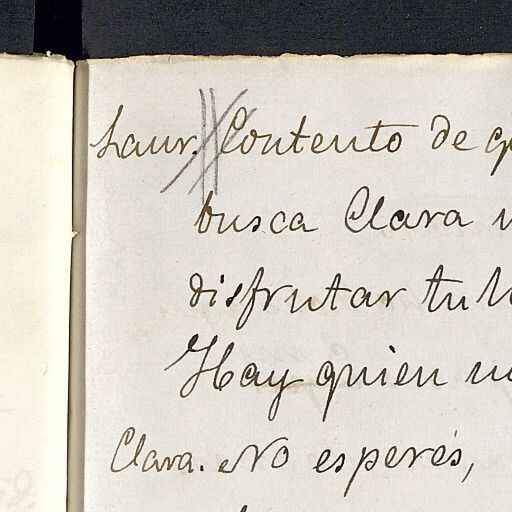 Laur. Contento de
busca Clara
disfrutar tu
Hay quien
Clara. No esperes,